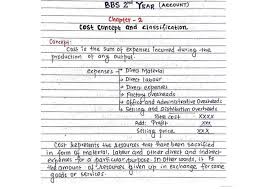 BBS 2nd YEAR (ACCOUNT)
Chapter - 2
Cost Concept and classification
Concept:
Cost is the sum of expenses incurred during the
production of any output.
expenses → Direct Material
Direct labour
Direct expenses
Factory overheads
Office and Administrative Overheads
Selling and Distribution overheads
Total cost xxxx
Add: Profit xx
Selling price xxx
Cost represents the resources that have been sacrificed
in form of material, labour and other direct and indirect
expenses for a particular purpose. In other words, it is
the amount of resources given up in exchange for some
goods or services.